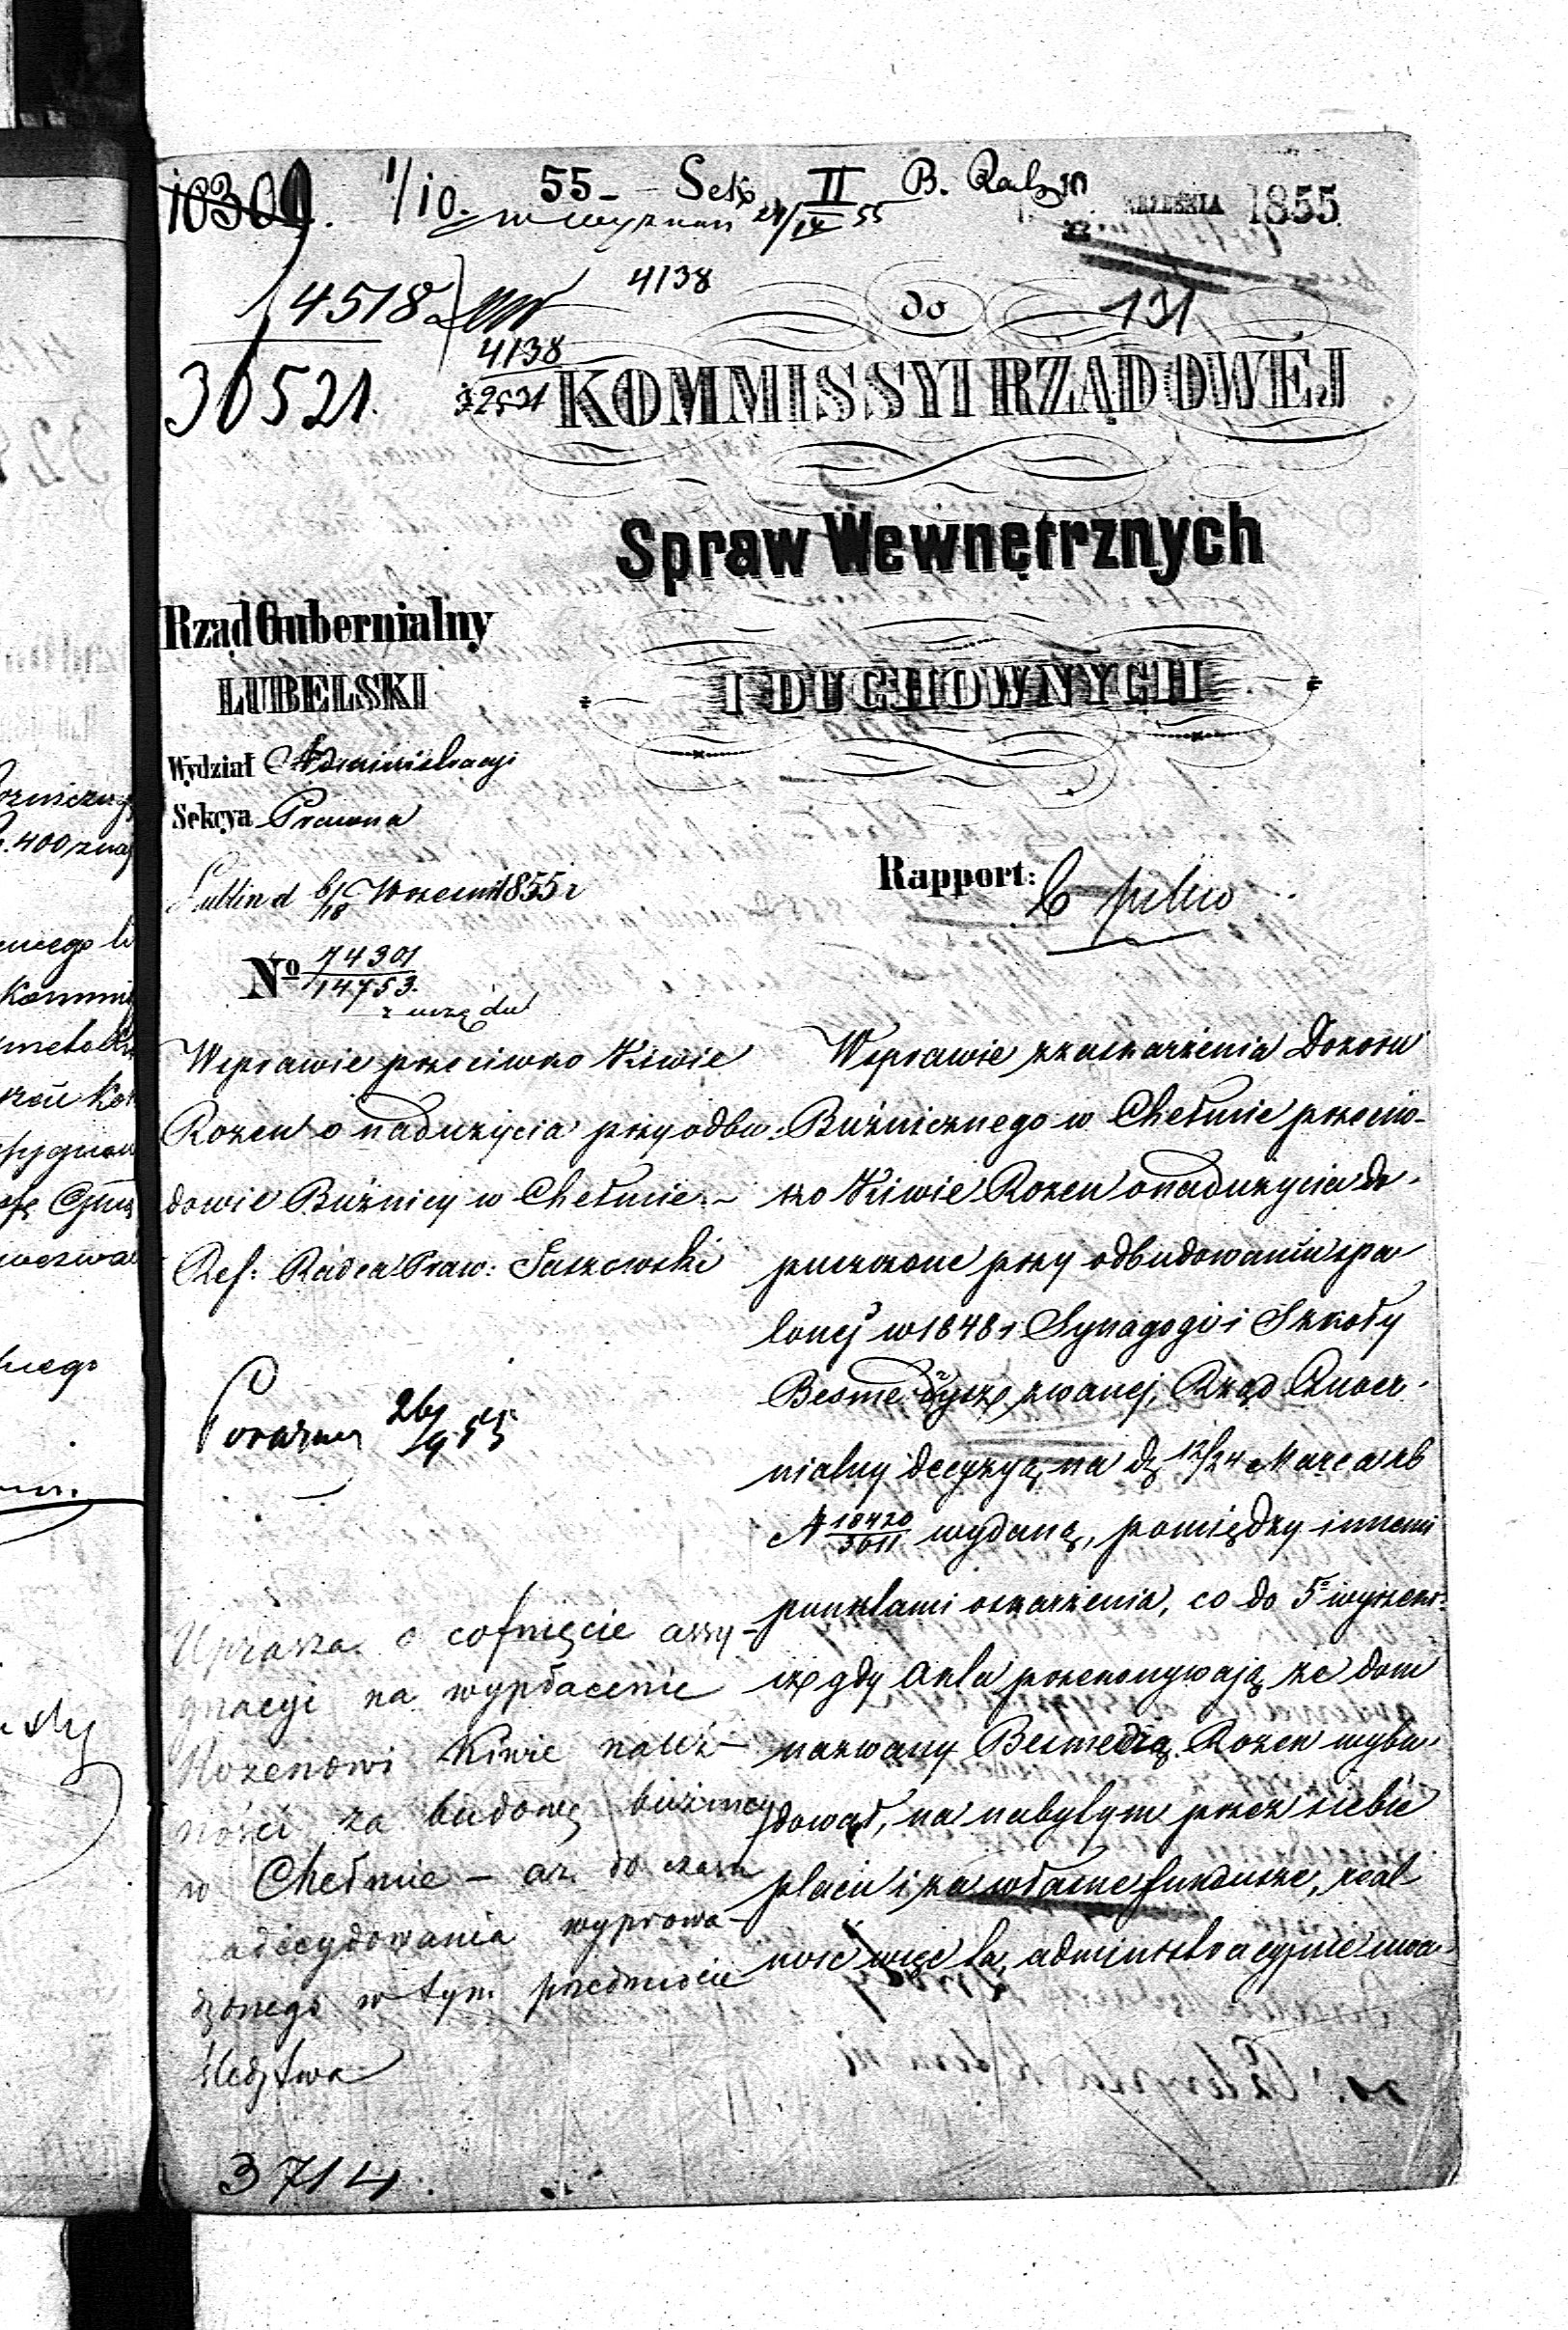 10309. 1/10. 55 - Sek II B. Rabin
WRZEŚNIA 1855
14518
4138
do
131
4138
32521
30521.
KOMMISSYI RZĄDOWÉJ
Spraw Wewnętrznych
I DUCHOWNYCH
Rząd Gubernialny
LUBELSKI
Wydział Administracyi
Sekcya Prawna
Lublin d 6/18 Wrześni 1855 r
Nº 74301/14753.
z urzędu
Rapport:
pilno
Wsprawie przeciwko Kiwie
Rozen o nadużycia przy odbu-
dowie Bużnicy w Chełmie.-
Ref: Radca Praw:
26/9 55
Uprasza o cofnięcie assy-
gnacyi na wypłacenie
Rozenowi Kiwie należ-
ności za budowę bużnicy
w Chełmie - aż do czasu
zadecydowania wyprowa-
dzonego w tym przedmiocie
śledztwa
3714.
Wsprawie zaskarżenia Dozoru
Bużnicznego w Chełmie przeciw-
ko Kiwie Rozen o nadużycia do-
puszczone przy odbudowaniu spa-
lonej w 1848 r Synagogi i Szkoły
zwanej, Rząd Guber-
nialny decyzyą na dz 12/24 Marca rb
N 18420/3611 wydaną, pomiędzy innemi
punktami oskarżenia, co do 5º wyrzekł
że gdy akta przekonywają że dom
nazwany Besmedrą Rozen wybu-
dował, na nabytym przez siebie
placu i za własne fundusze, real-
ność więc ta, administracyjnie uwa-